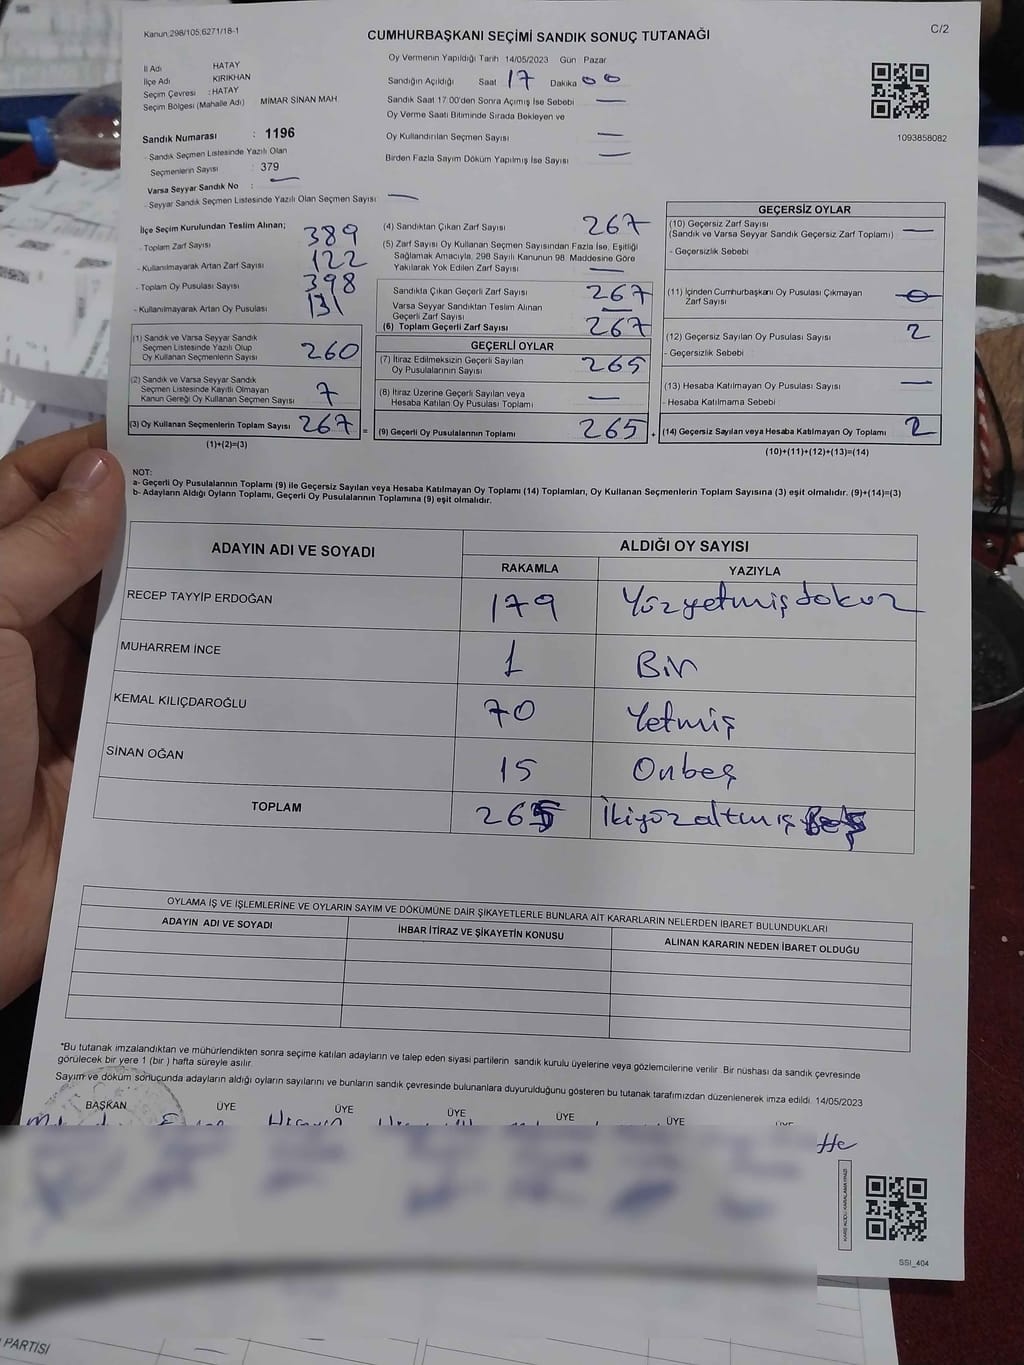 Kanun 298/105;6271/18-1
C/2
CUMHURBAŞKANI SEÇİMİ SANDIK SONUÇ TUTANAĞI
İl Adı HATAY
İlçe Adı KIRIKHAN
Seçim Çevresi : HATAY
Seçim Bölgesi (Mahalle Adı) MİMAR SİNAN MAH
Sandık Numarası : 1196
- Sandık Seçmen Listesinde Yazılı Olan
Seçmenlerin Sayısı : 379
Varsa Seyyar Sandık No : —
- Seyyar Sandık Seçmen Listesinde Yazılı Olan Seçmen Sayısı —
Oy Vermenin Yapıldığı Tarih 14/05/2023 Gün Pazar
Sandığın Açıldığı Saat 17 Dakika 00
Sandık Saat 17.00'den Sonra Açımış İse Sebebi —
Oy Verme Saati Bitiminde Sırada Bekleyen ve
Oy Kullandırılan Seçmen Sayısı —
Birden Fazla Sayım Döküm Yapılmış İse Sayısı —
1093858082
İlçe Seçim Kurulundan Teslim Alınan;
- Toplam Zarf Sayısı 389
- Kullanılmayarak Artan Zarf Sayısı 122
- Toplam Oy Pusulası Sayısı 398
- Kullanılmayarak Artan Oy Pusulası 131
(1) Sandık ve Varsa Seyyar Sandık
Seçmen Listesinde Yazılı Olup
Oy Kullanan Seçmenlerin Sayısı 260
(2) Sandık ve Varsa Seyyar Sandık
Seçmen Listesinde Kayıtlı Olmayan
Kanun Gereği Oy Kullanan Seçmen Sayısı 7
(3) Oy Kullanan Seçmenlerin Toplam Sayısı 267 =
(1)+(2)=(3)
(4) Sandıktan Çıkan Zarf Sayısı 267
(5) Zarf Sayısı Oy Kullanan Seçmen Sayısından Fazla İse, Eşitliği
Sağlamak Amacıyla, 298 Sayılı Kanunun 98. Maddesine Göre
Yakılarak Yok Edilen Zarf Sayısı —
Sandıkta Çıkan Geçerli Zarf Sayısı 267
Varsa Seyyar Sandıktan Teslim Alınan
Geçerli Zarf Sayısı —
(6) Toplam Geçerli Zarf Sayısı 267
GEÇERLİ OYLAR
(7) İtiraz Edilmeksizin Geçerli Sayılan
Oy Pusulalarının Sayısı 265
(8) İtiraz Üzerine Geçerli Sayılan veya
Hesaba Katılan Oy Pusulası Toplamı —
(9) Geçerli Oy Pusulalarının Toplamı 265 +
GEÇERSİZ OYLAR
(10) Geçersiz Zarf Sayısı
(Sandık ve Varsa Seyyar Sandık Geçersiz Zarf Toplamı) —
- Geçersizlik Sebebi
(11) İçinden Cumhurbaşkanı Oy Pusulası Çıkmayan
Zarf Sayısı 0
(12) Geçersiz Sayılan Oy Pusulası Sayısı 2
- Geçersizlik Sebebi
(13) Hesaba Katılmayan Oy Pusulası Sayısı —
- Hesaba Katılmama Sebebi
(14) Geçersiz Sayılan veya Hesaba Katılmayan Oy Toplamı 2
(10)+(11)+(12)+(13)=(14)
NOT:
a- Geçerli Oy Pusulalarının Toplamı (9) ile Geçersiz Sayılan veya Hesaba Katılmayan Oy Toplamı (14) Toplamları, Oy Kullanan Seçmenlerin Toplam Sayısına (3) eşit olmalıdır. (9)+(14)=(3)
b- Adayların Aldığı Oyların Toplamı, Geçerli Oy Pusulalarının Toplamına (9) eşit olmalıdır.
ADAYIN ADI VE SOYADI ALDIĞI OY SAYISI
RAKAMLA YAZIYLA
RECEP TAYYİP ERDOĞAN 179 Yüzyetmişdokuz
MUHARREM İNCE 1 Bir
KEMAL KILIÇDAROĞLU 70 Yetmiş
SİNAN OĞAN 15 Onbeş
TOPLAM 265 İkiyüzaltmışbeş
OYLAMA İŞ VE İŞLEMLERİNE VE OYLARIN SAYIM VE DÖKÜMÜNE DAİR ŞİKAYETLERLE BUNLARA AİT KARARLARIN NELERDEN İBARET BULUNDUKLARI
ADAYIN ADI VE SOYADI İHBAR İTİRAZ VE ŞİKAYETİN KONUSU ALINAN KARARIN NEDEN İBARET OLDUĞU
"Bu tutanak imzalandıktan ve mühürlendikten sonra seçime katılan adayların ve talep eden siyasi partilerin sandık kurulu üyelerine veya gözlemcilerine verilir. Bir nüshası da sandık çevresinde
görülecek bir yere 1 (bir) hafta süreyle asılır.
Sayım ve döküm sonucunda adayların aldığı oyların sayılarını ve bunların sandık çevresinde bulunanlara duyurulduğunu gösteren bu tutanak tarafımızdan düzenlenerek imza edildi. 14/05/2023
BAŞKAN ÜYE ÜYE ÜYE ÜYE ÜYE
SSI_404
PARTİSİ